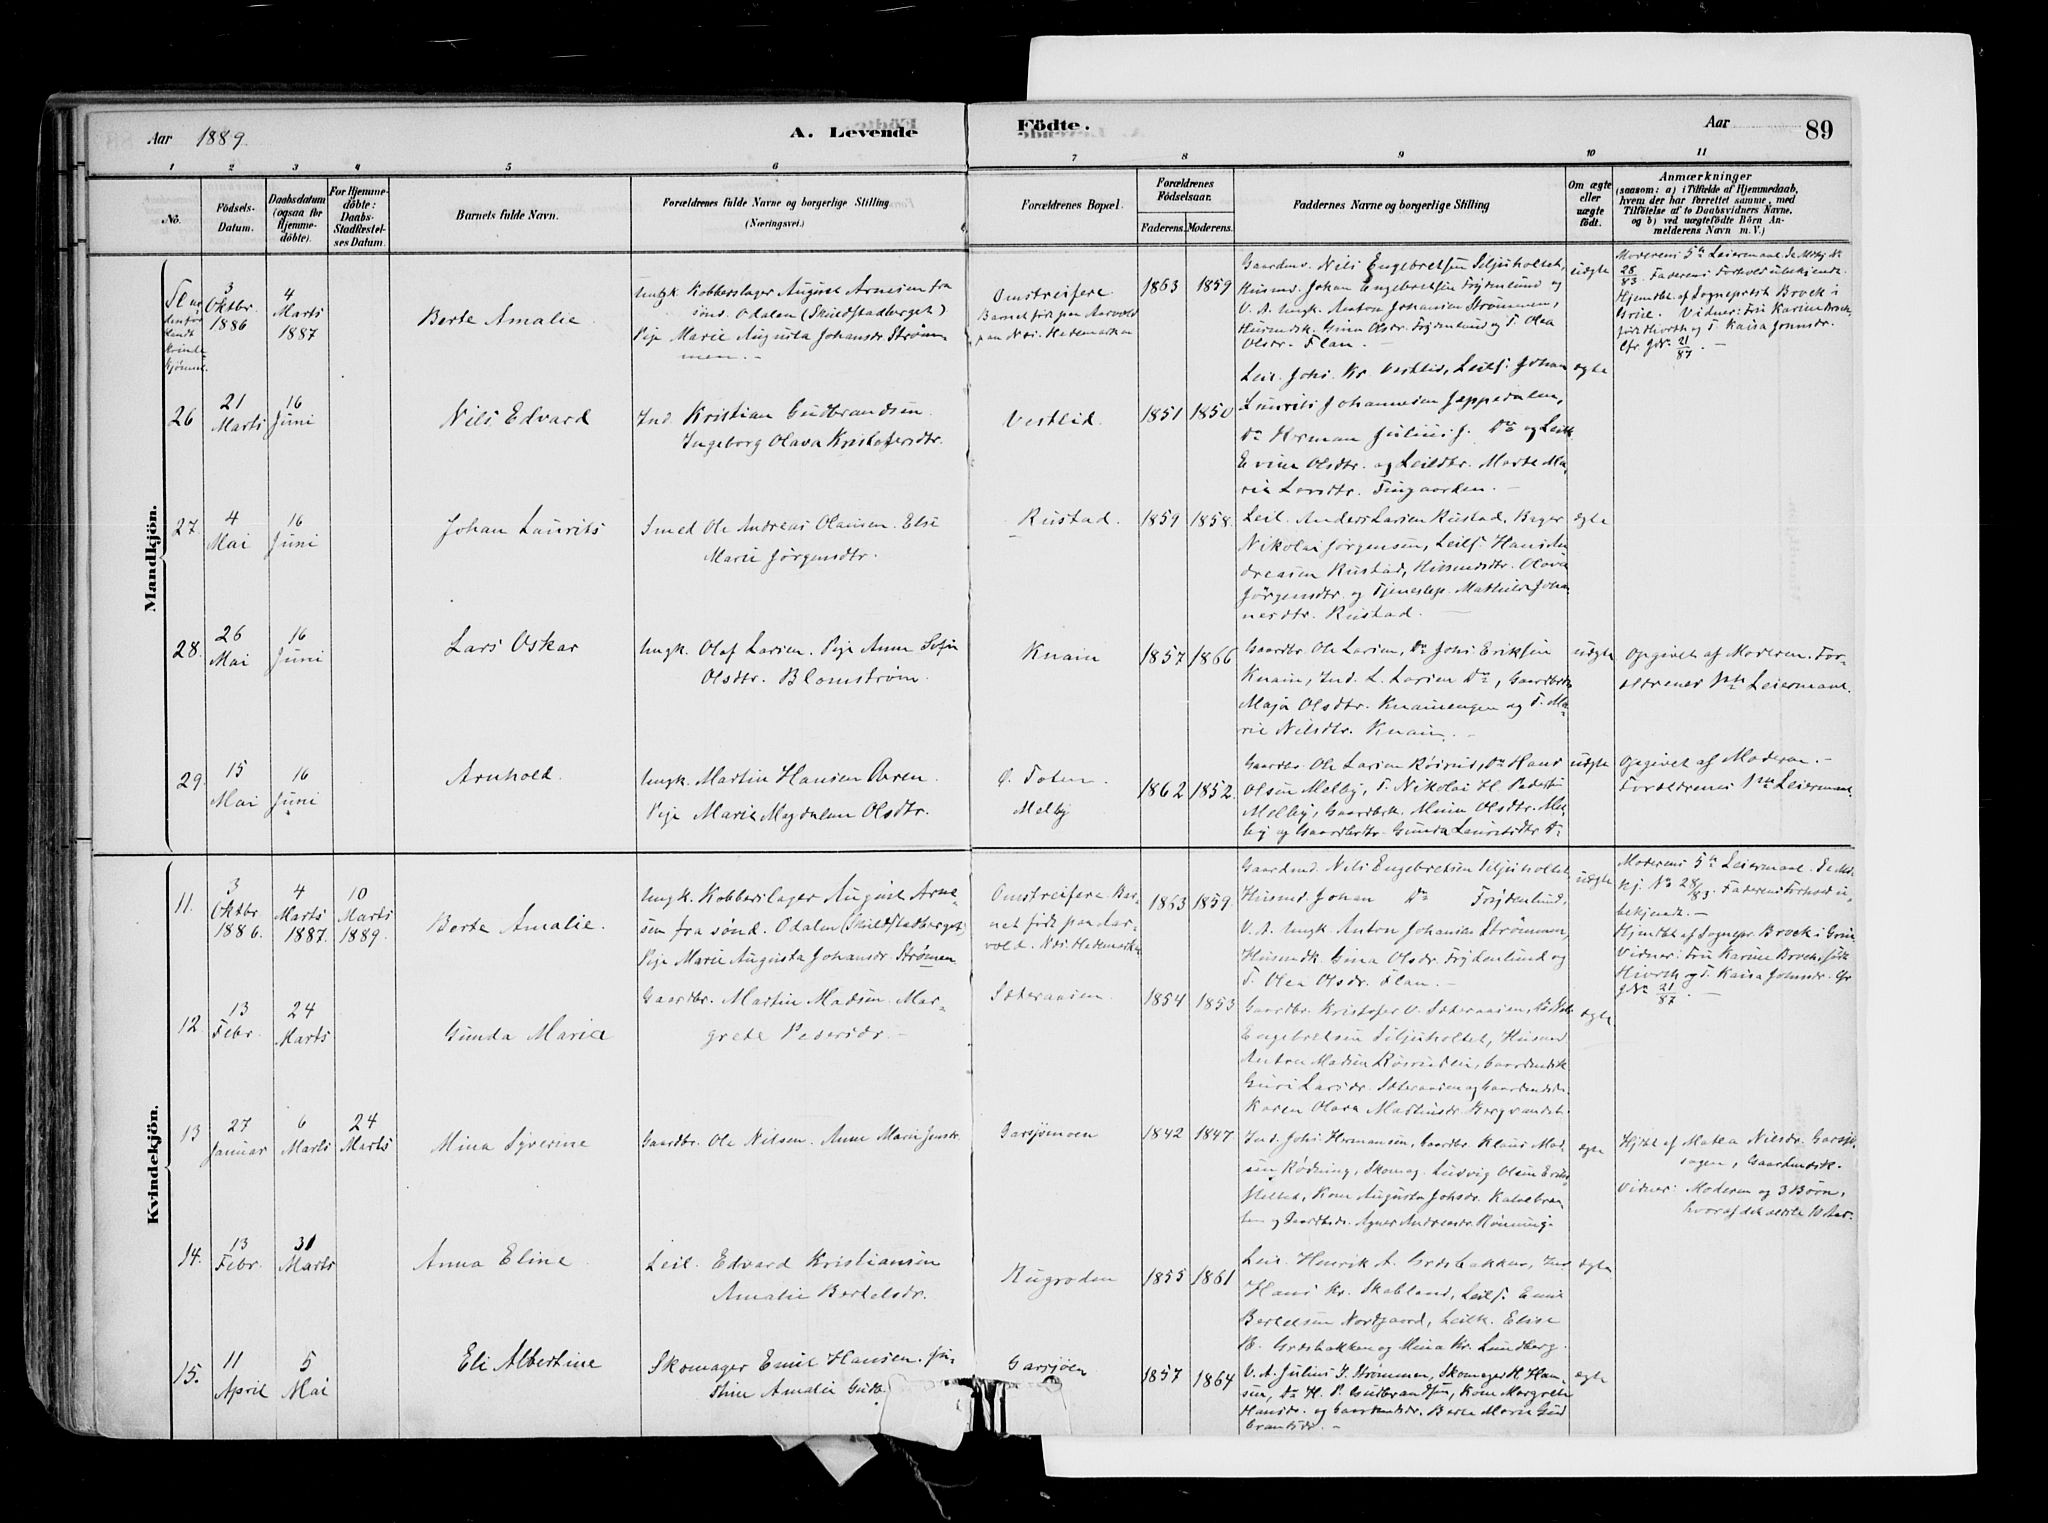 Aar 1889.
A. Levende
Födte.
Aar
89
1 2 3 4 5 6 7 8 9 10 11
No.
Födsels-
Datum.
Daabsdatum
(ogsaa for
Hjemme-
döbte).
For Hjemme-
döbte:
Daabs-
Stadfæstel-
ses Datum.
Barnets fulde Navn.
Forældrenes fulde Navne og borgerlige Stilling
(Næringsvei.)
Forældrenes Bopæl.
Forældrenes
Födselsaar.
Faderens. Moderens.
Faddernes Navne og borgerlige Stilling
Om ægte
eller
uægte
födt.
Anmærkninger
(saasom: a) i Tilfælde af Hjemmedaab,
hvem der har forrettet samme, med
Tilföielse af to Daabsvidners Navne,
og b) ved uægtefödte Börn An-
melderens Navn m. V.)
Mandkjön.
3
Oktbr.
1886
4
Marts
1887
Berte Amalie
Ungk. Kobberslager August Arnesen fra
sönd. Odalen (Skuldstadberget)
Pige Marie Augusta Johansdr. Strøm-
men.
Omstreifere.
Barnet født paa Aarvold
paa Nes. Hedemarken
1863 1859
Gaardmd. Nils Engebretsen Siljuholtet,
Husmd. Johan Engebretsen Frydenlund og
U. A. Ungk. Anton Johansen Strømmen,
Husmdsk. Gina Olsdr. Frydenlund og T. Olea
Olsdr. Flan.
uægte
Moderens 5te Leiermaal.
28/83. Faderens Forhold ubekjendt.
Hjemdbt. af Sogneprest Brock i
Vidner: Fru Karine Brock,
født Hiorth og T. Kaisa Johnsdr.
Cfr. 21/87.
26
21
Marts
16
Juni
Nils Edvard
Ind. Kristian Gudbrandsen.
Ingeborg Olava Kristofersdtr.
Vestlid.
1851 1850
Leil. Johs. Kr. Vestlid, Leils. Johan
Laurits Johannesen Jeppedalen,
Do Herman Julius J. Do og Leilk.
Evine Olsdtr. og Leildtr. Marte Ma-
rie Larsdtr. Tingaarden.
ægte
27
4
Mai
16
Juni
Johan Laurits
Smed Ole Andreas Olausen. Else
Marie Jørgensdtr.
Rustad.
1859 1858.
Leil. Anders Larsen Rustad, Bager
Nikolai Jørgensen, Leils. Hans An-
dreasen Rustad, Husmdsdtr. Olava
Jørgensdtr. og Tjenestep. Mathilde Johan-
nesdtr. Rustad.
ægte
28.
26
Mai
16
Juni
Lars Oskar
Ungk. Olaf Larsen. Pige Anne Sofie
Olsdtr. Blomstrøm.
Knain
1857 1866
Gaardbr. Ole Larsen, Do Johs. Eriksen
Knain, Ind. L. Larsen Do, Gaardbrk.
Maja Olsdtr. Knainengen og T. Ma-
rie Nilsdtr. Knain.
uægte
Opgivet af Moderen. For-
ældrenes 1ste Leiermaal.
29.
15
Mai
16
Juni
Arnhold.
Ungk. Martin Hansen Ovren.
Pige Marie Magdalene Olsdtr.
Ø. Toten
Melby
1862 1852.
Gaardbr. Ole Larsen Røisrud, Do Hans
Olsen Melby, T. Nikolai H. Pedersen
Melby, Gaardbrk. Mina Olsdtr. Mel-
by og Gaardbrdtr. Gunda Lauritsdtr. Do
uægte
Opgivet af Moderen.
Forældrenes 1ste Leiermaal.
Kvindekjön.
11.
3
Oktbr
1886.
4
Marts
1887.
10
Marts
1889.
Berte Amalie.
Ungk. Kobberslager August Arne-
sen fra sønd. Odalen (Skuldstadberget)
Pige Marie Augusta Johansdr. Strømmen
Omstreifere Bar-
net født paa Aar-
vold. Nes. Hedemarken
1863 1859.
Gaardmd. Nils Engebretsen Siljuholtet
Husmd. Johan Do Frydenlund,
U. A. Ungk. Anton Johansen Strømmen,
Husmdk. Gina Olsdr. Frydenlund og
T. Olea Olsdr. Flan.
uægte
Moderens 5te Leiermaal.
No 28/83. Faderens Forhold u-
bekjendt.
Hjemdbt. af Sognepr. Brock i
Vidner: Fru Karine Brock, født
Hiorth og T. Kaisa Johnsdr. Cfr
21/87.
12.
13
Febr.
24
Marts
Gunda Marie
Gaardbr. Martin Madsen. Mar-
grete Pedersdr.
Sæteraasen.
1854 1853
Gaardbr. Kristofer O. Sæteraasen,
Engebretsen Siljuholtet, Husmd.
Anton Madsen Røsrudsen, Gaardmdsk.
Guri Larsdr. Sæteraasen og Gaardmdsdtr.
Karen Olava Martinsdr. Bergvandet.
ægte
13
27
Januar
6
Marts
24
Marts
Mina Syverine
Gaardbr. Ole Nilsen. Anne Marie Jensdr.
Garsjømoen
1842 1847
Ind. Johs. Hermansen, Gaardbr. Klaus Mad-
sen Rødning, Skomag. Ludvig Olsen
Kone Augusta Johsdr. Kalvebrau-
ten og Gaardbdr. Agnes Andreasdr. Rønning.
ægte
Hjdbt. af Matea Nilsdr. Garsjø-
engen, Gaardmdsk.
Vidner: Moderen og 3 Børn,
hvoraf det ældste 10 Aar.
14.
13
Febr.
31
Marts
Anna Eline
Leil. Edvard Kristiansen
Amalie Bertelsdr.
Rugroden
1855 1861
Leil. Henrik A. Grøsbakken, Ind
Hans Kr. Skabland, Leils. Emil
Bertelsen Nordgaard, Leilk. Elise
H. Grøsbakken og Mina Kr. Lundberg.
ægte
15.
11
April
5
Mai
Eli Albertine
Skomager Emil Hansen. Ju-
stine Amalie Gudb.
Garsjøen
1857 1864
U. A. Julius J. Strømmen, Skomager H. Han-
sen, Do H. P. Gudbrandsen, Kone Margrete
Hansdr. og Berte Marie Gud-
brandsdr.
ægte